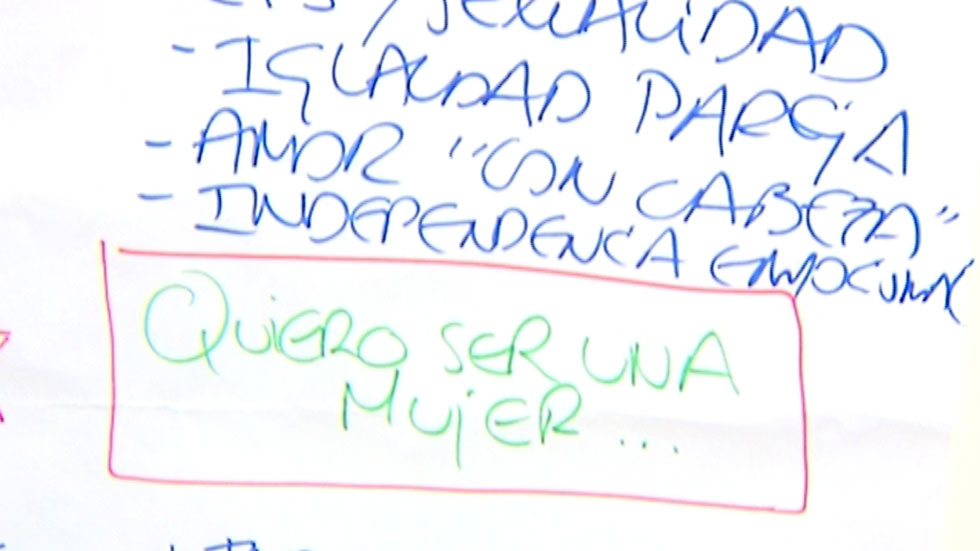 /SEXUALIDAD
- IGUALDAD PAREJA
- AMOR "CON CABEZA"
- INDEPENDENCIA EMOCIONAL
QUIERO SER UNA
MUJER...